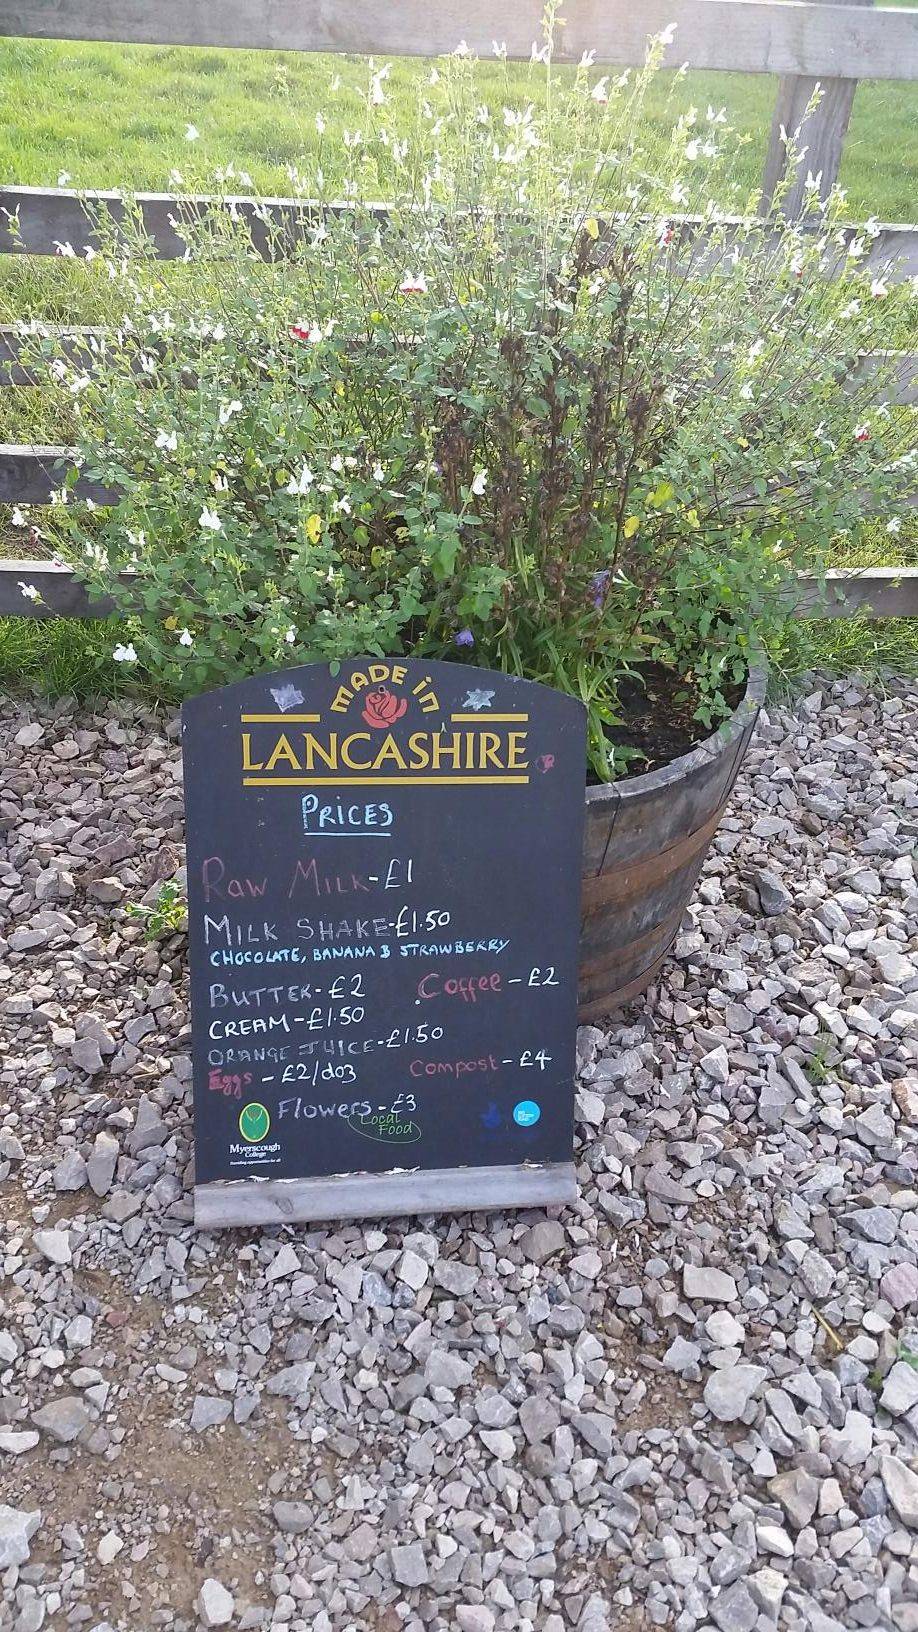 MADE in
LANCASHIRE
PRICES
RAW MILK-£1
MILK SHAKE-£1.50
CHOCOLATE, BANANA & STRAWBERRY
BUTTER-£2 Coffee-£2
CREAM-£1.50
ORANGE JUICE-£1.50
Eggs -£2/doz Compost-£4
Flowers-£3
Local
Food
Myerscough
College